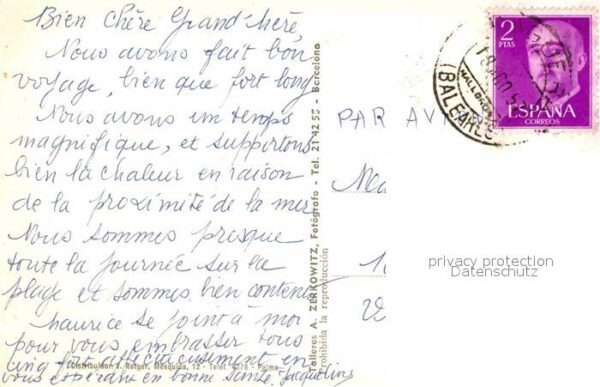 Bien chère Grand'Mère,
Nous avons fait bon
voyage, bien que fort long
Nous avons un temps
magnifique, et supportons
bien la chaleur en raison
de la proximité de la mer
Nous sommes presque
toute la journée sur la
plage et sommes bien contents
Maurice se joint à moi
pour vous embrasser tous
cinq fort affectueusement en
vous espérant en bonne santé. Jacqueline
Distribuidor: R. Rotger, Mesquida, 12 - Telef. - Palma
Talleres A. ZERKOWITZ, Fotógrafo - Tel. 21 42 55 - Barcelona
Prohibida la reproducción
PAR AVION
2
PTAS
ESPAÑA
CORREOS
MALLORCA
(BALEARES)
privacy protection
Datenschutz